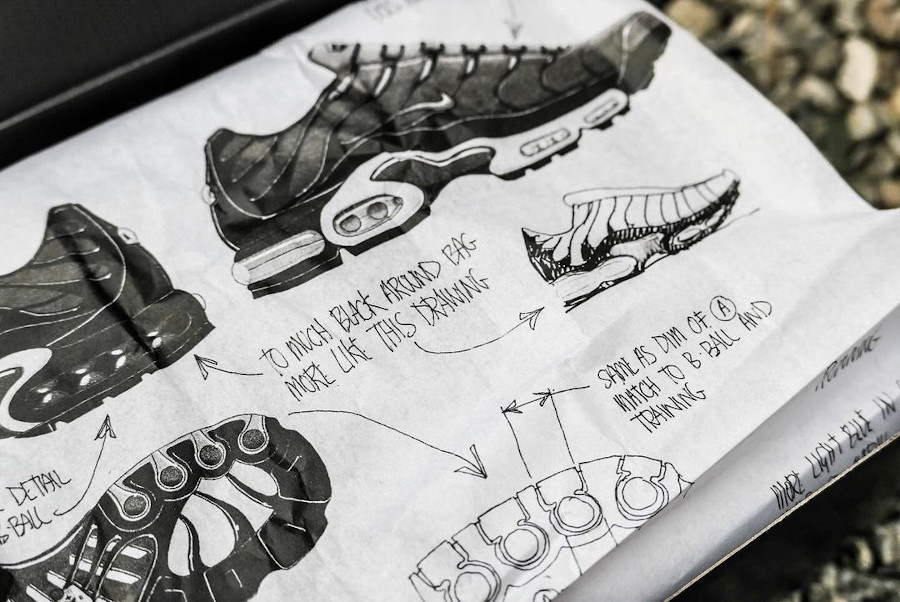 TO MUCH BLACK AROUND BAG
MORE LIKE THIS DRAWING
SAME AS DIM OF Ⓐ
MATCH TO B-BALL AND
TRAINING
DETAIL
BALL
RUNNING
MORE LIGHT BLUE IN